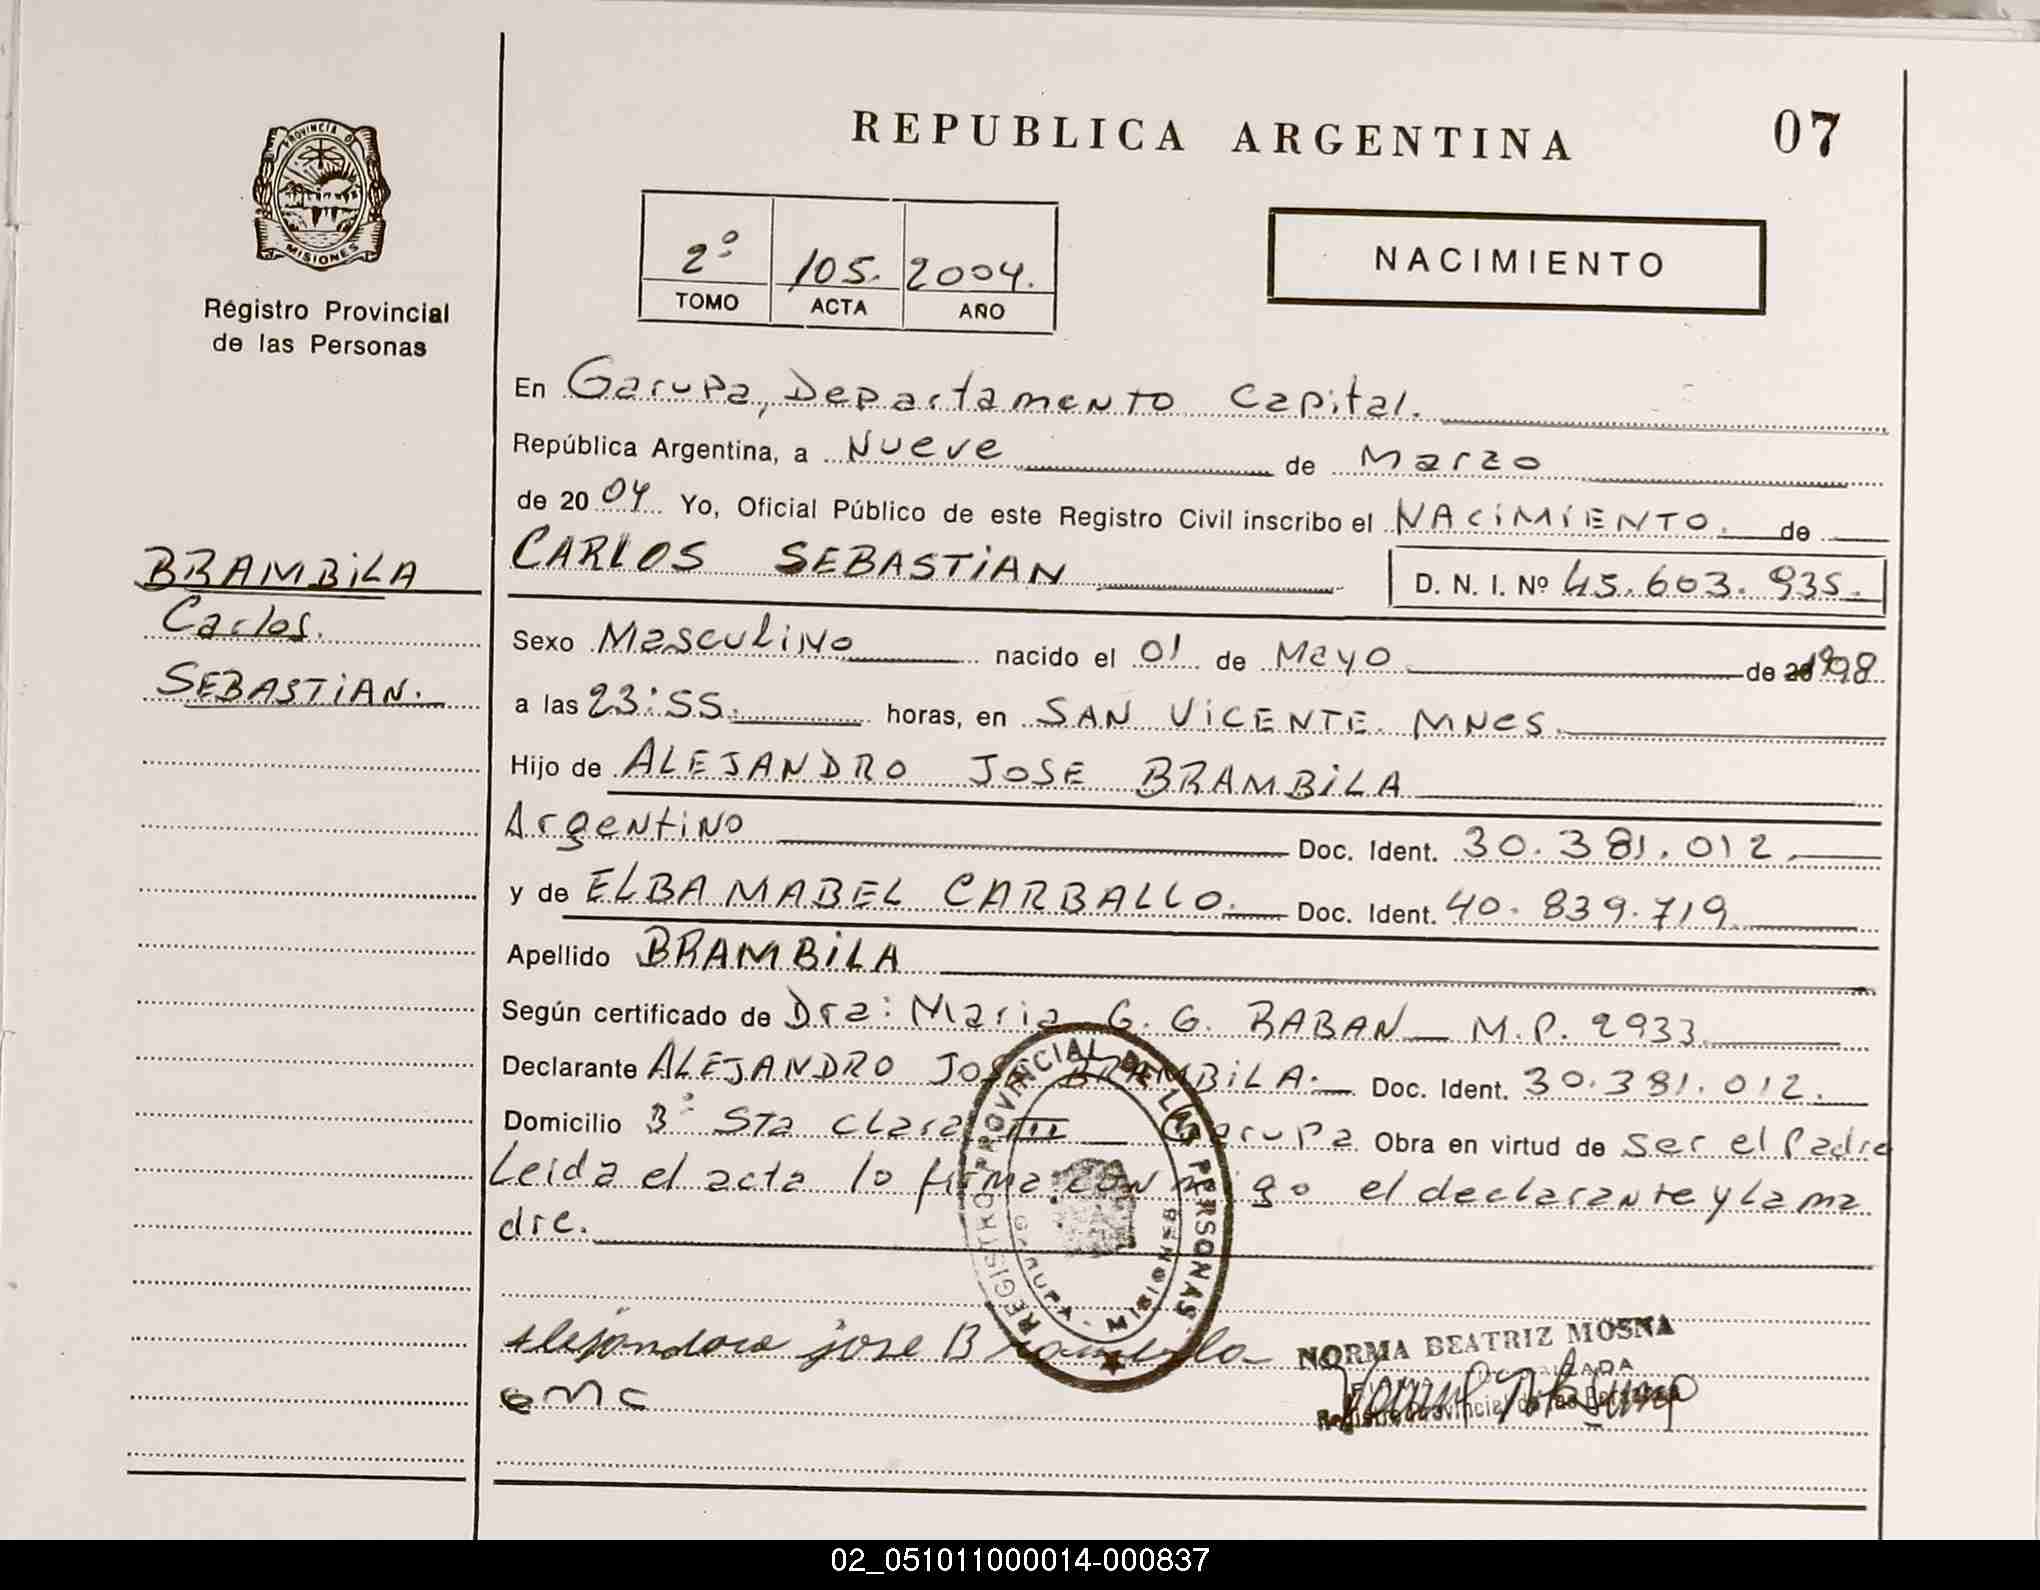 REPUBLICA ARGENTINA
07
PROVINCIA DE
MISIONES
Registro Provincial
de las Personas
2º 105. 2004.
TOMO ACTA AÑO
NACIMIENTO
En Garupa, Departamento Capital.
República Argentina, a Nueve de Marzo
de 2004 Yo, Oficial Público de este Registro Civil inscribo el NACIMIENTO. de
BRAMBILA
Carlos.
SEBASTIAN.
CARLOS SEBASTIAN D. N. I. Nº 45.603.935.
Sexo Masculino nacido el 01 de Mayo de 1998
a las 23:55. horas, en SAN VICENTE. MNES.
Hijo de ALEJANDRO JOSE BRAMBILA
Argentino Doc. Ident. 30.381.012.
y de ELBA MABEL CARBALLO. Doc. Ident. 40.839.719
Apellido BRAMBILA
Según certificado de Dra: Maria G. G. BABAN M.P. 2933
Declarante ALEJANDRO JOSE BRAMBILA. Doc. Ident. 30.381.012.
Domicilio Bº Sta Clara III Garupa Obra en virtud de ser el Padre
Leida el acta lo firma conmigo el declarante y la ma
dre.
REGISTRO PROVINCIAL DE LAS PERSONAS
GARUPA - MISIONES
jose Brambila
EMC
NORMA BEATRIZ MOSNA
Registro Provincial de las Personas
02_051011000014-000837